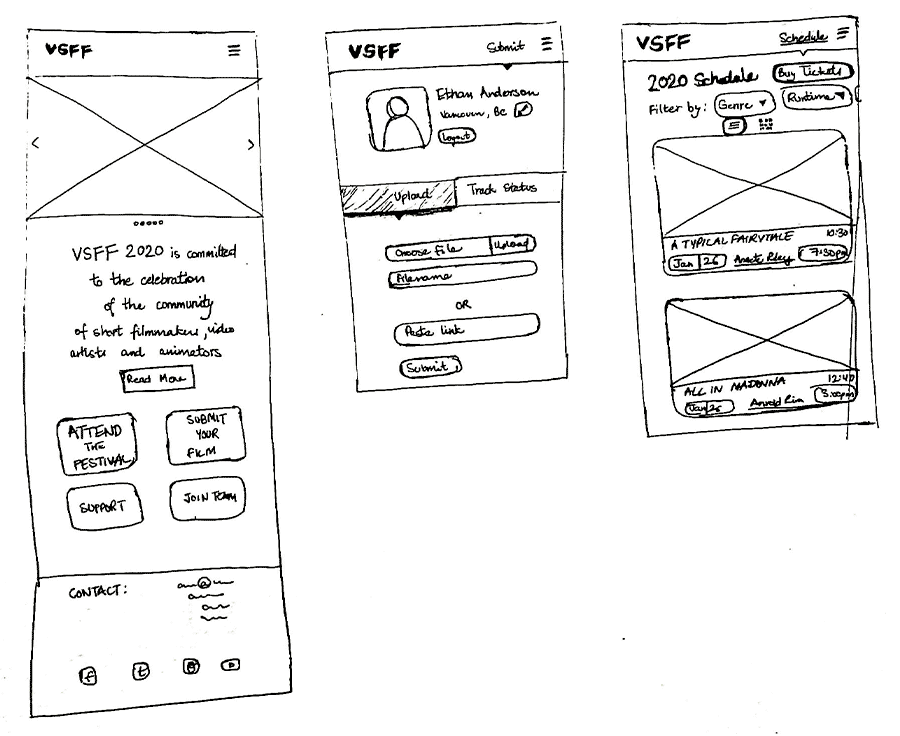 VSFF
VSFF 2020 is committed
to the celebration
of the community
of short filmmakers, video
artists and animators
Read More
ATTEND
THE
FESTIVAL
SUBMIT
YOUR
FILM
SUPPORT
JOIN TEAM
CONTACT:
f
t
VSFF
Submit
Ethan Anderson
Vancouver, BC
Logout
Upload
Track Status
Choose File
Upload
Filename
OR
Paste link
Submit
VSFF
Schedule
2020 Schedule
Buy Tickets
Filter by:
Genre
Runtime
A TYPICAL FAIRYTALE
10:30
Jan 26
7:30pm
ALL IN MADONNA
12:47
Jan 26